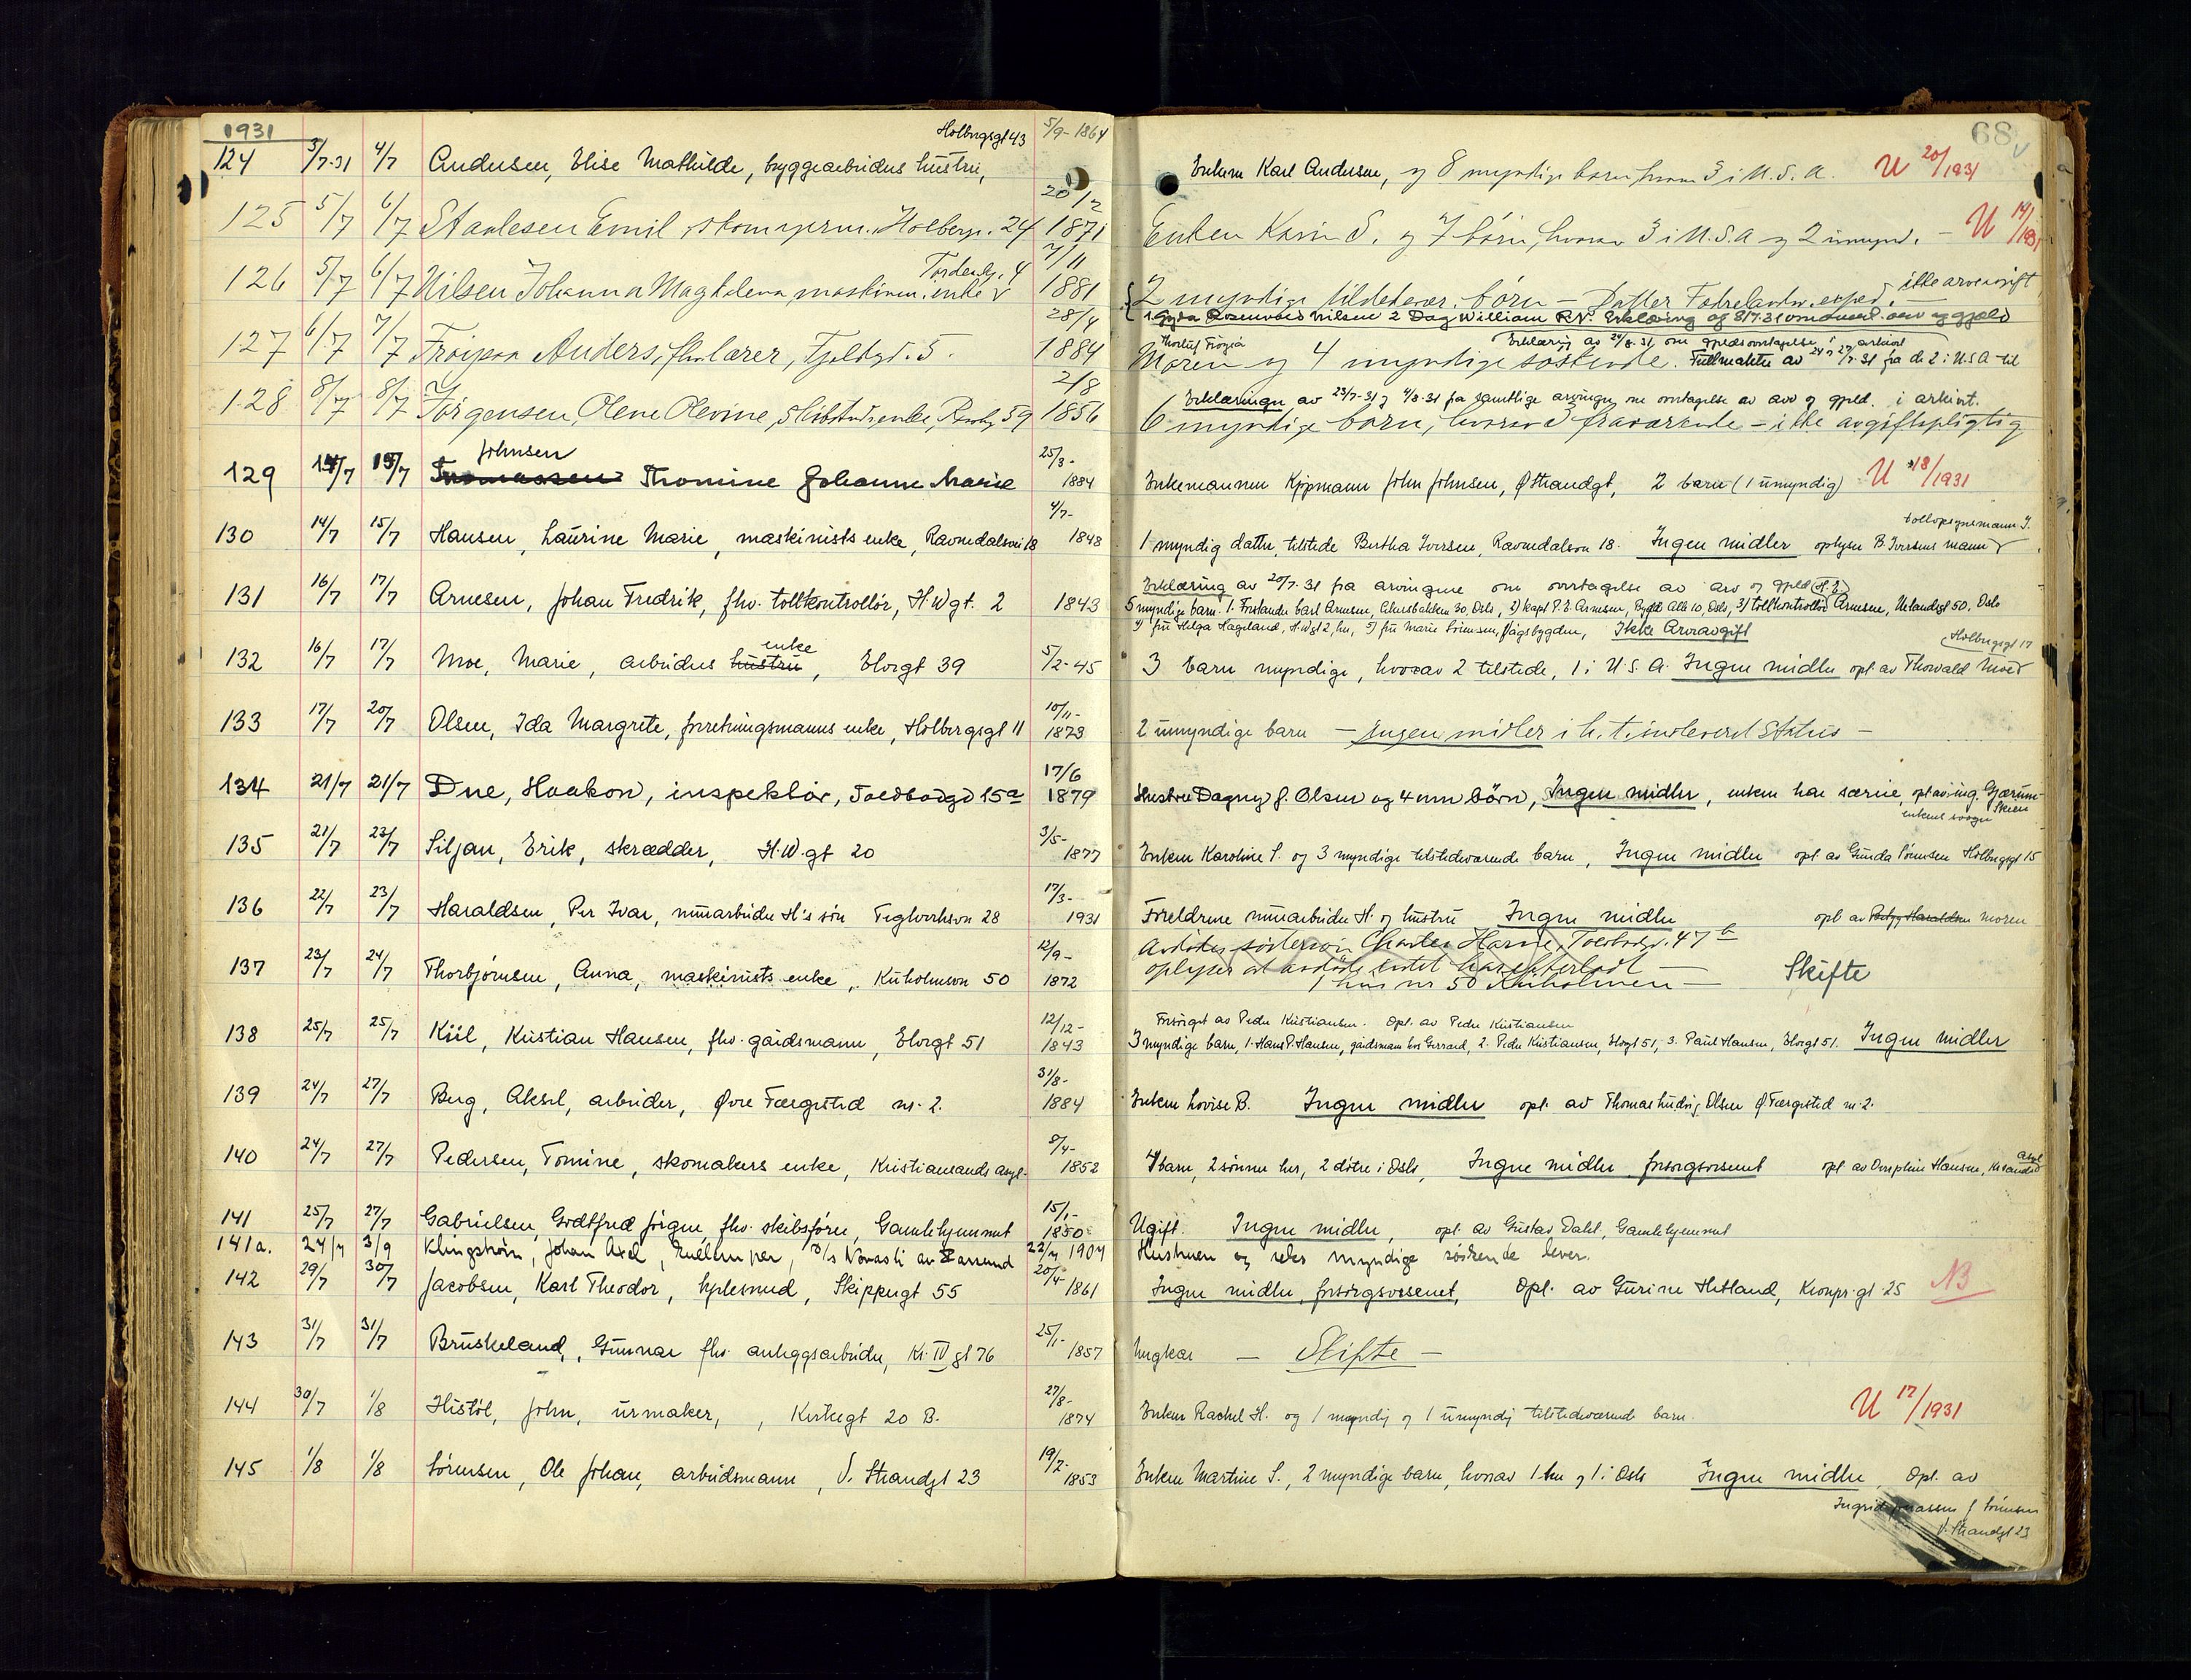 1931
68
Holbergsgt 43 5/9- 1864
124 3/7-31 4/7 Andersen, Elise Mathilde, byggearbeiders hustru, Enkem Karl Andersen, og 8 myndige barn hvorav 3 i U.S.A. U 20/1931
20/2
125 5/7 6/7 Emil, Holbergs. 24 1871 Enken Karin S. og 7 børn, hvorav 3 i U.S.A og 2 umynd. — U 14/1931
Tordensk. 4 7/11
126 5/7 6/7 Nilsen Johanna Magdalena, maskinm. enke 1881 2 myndige tilstedevær. børn — Datter ikke arveavgift
28/4 1. Gyda Rosenvold Nilsen 2 Dag William R.N. Erklæring af 8/7.31 arv og gjæld
127 6/7 7/7 Anders, fhv lærer, 5. 1884 Moren og 4 myndige søskende. Fullmakter av 24 27/7.31 fra de 2 i USA til
Erklæring av 24/8.31 om gjeldsovertagelse i arkivet
2/8 Erklæringer av 23/7-31 og 4/8.31 fra samtlige arvinger om overtagelse av arv og gjeld. i arkivet.
128 8/7 8/7 Jørgensen, Olene Olevine, 59 1856 6 myndige børn, hvorav 3 fraværende — ikke avgiftspligtig
Johnsen 25/3-
129 14/7 15/7 Thomassen Thomine Johanne Marie 1884 Enkemannen Kjøpmann John Johnsen, Ø Strandgt, 2 barn (1 umyndig) U 18/1931
4/7- tollopsynsmann J.
130 14/7 15/7 Hansen, Laurine Marie, maskinists enke, Ravnedalsvei 18 1848 1 myndig datter, tilstede Bertha Iversen, Ravnedalsvn 18. Ingen midler oplyser B. Iversens mann
Erklæring av 20/7.31 fra arvingene om overtagelse av arv og gjeld
131 16/7 17/7 Arnesen, Johan Fredrik, fhv. tollkontrollør, H.W.gt. 2 1843 5 myndige barn. 1. Carl Arnesen, Akersbakken 30, Oslo, 2) kapt P. E. Arnesen, Bygdø Alle 10, Oslo, 3) tollkontrollør Arnesen, Uelandsgt 50, Oslo
4) fru Helga Hageland, H.W.gt 2, her, 5) fru Marie Sørensen, Vågsbygden, Ikke Arveavgift
enke Holbergsgt 17
132 16/7 17/7 Moe, Marie, arbeiders hustru, Elvegt 39 5/2-45 3 barn myndige, hvorav 2 tilstede, 1 i U.S.A. Ingen midler opl av Thorvald Moe
10/11-
133 17/7 20/7 Olsen, Ida Margrete, forretningsmanns enke, Holbergsgt 11 1873 2 umyndige barn — Ingen midler i h. t. innleveret Status —
17/6
134 21/7 21/7 Due, Haakon, inspektør, Toldbodgt 15a 1879 Hustru Dagny f. Olsen og 4 umm børn, Ingen midler, enken har særeie, opl av ing. Gjærum
Skien enkens svoger
3/5-
135 21/7 23/7 Siljan, Erik, skrædder, H.W.gt 20 1877 Enken Karoline S. og 3 myndige tilstedeværende barn, Ingen midler opl av Gunda Sørensen Holbergsgt 15
17/3-
136 22/7 23/7 Haraldsen, Per Ivar, murarbeider H's søn Teglverksvn 28 1931 Foreldrene murarbeider H. og hustru Ingen midler opl av moren
12/9- Avdødes søstersøn Charles Harris, Toldbodgt. 47 b
137 23/7 24/7 Thorbjørnsen, Anna, maskinists enke, Kuholmsvn 50 1872 oplyser at avdøde intet har efterladt — Skifte
1 hus nr 50 Kuholmen —
12/12- Forsørget av Peder Kristiansen. Opl. av Peder Kristiansen
138 25/7 25/7 Kiil, Kristian Hansen, fhv. gårdsmann, Elvegt 51 1843 3 myndige barn, 1. Hans P. Hansen, gårdsmann hos Gerrard, 2. Peder Kristiansen, Elvegt 51, 3. Paul Hansen, Elvegt 51. Ingen midler
31/8-
139 24/7 27/7 Berg, Aksel, arbeider, Øvre Færgested nr. 2. 1884 Enken Lovise B. Ingen midler opl. av Thomas Ludvig Olsen Ø Færgested nr. 2.
8/4- asyl
140 24/7 27/7 Pedersen, Tomine, skomakers enke, Kristiansands asyl. 1852 4 barn, 2 sønner her, 2 døtre i Oslo, Ingen midler forsorgsvesenet opl av Josephine Hansen, Krsands
15/1-
141 25/7 27/7 Gabrielsen, Godtfred Jørgen, fhv. skibsfører, Gamlehjemmet 1850 Ugift. Ingen midler, opl. av Gustav Dahl, Gamlehjemmet
141a. 24/7 3/9 Klingstrøm, Johan Axel, 22/7 1907 Hustruen og seks myndige søskende lever.
20/4-
142 29/7 30/7 Jacobsen, Karl Theodor, hjulesmed, Skippergt 55 1861 Ingen midler, forsorgsvesenet, Opl. av Gurine Hetland, Kronpr.gt 25 NB
25/1-
143 31/7 31/7 Bruskeland, Gunnar fhv. anleggsarbeider, Kr. IV gt 76 1857 Ungkar — Skifte —
27/8-
144 30/7 1/8 Histøl, John, urmaker, Kirkegt 20 B. 1874 Enken Rachel H. og 1 myndig og 1 umyndig tilstedeværende barn. U 17/1931
19/2-
145 1/8 1/8 Sørensen, Ole Johan, arbeidsmann, V. Strandgt 23 1853 Enken Martine S., 2 myndige barn, hvorav 1 her og 1 i Oslo Ingen midler, Opl. av
Ingrid Jonassen f Sørensen
V. Strandgt 23